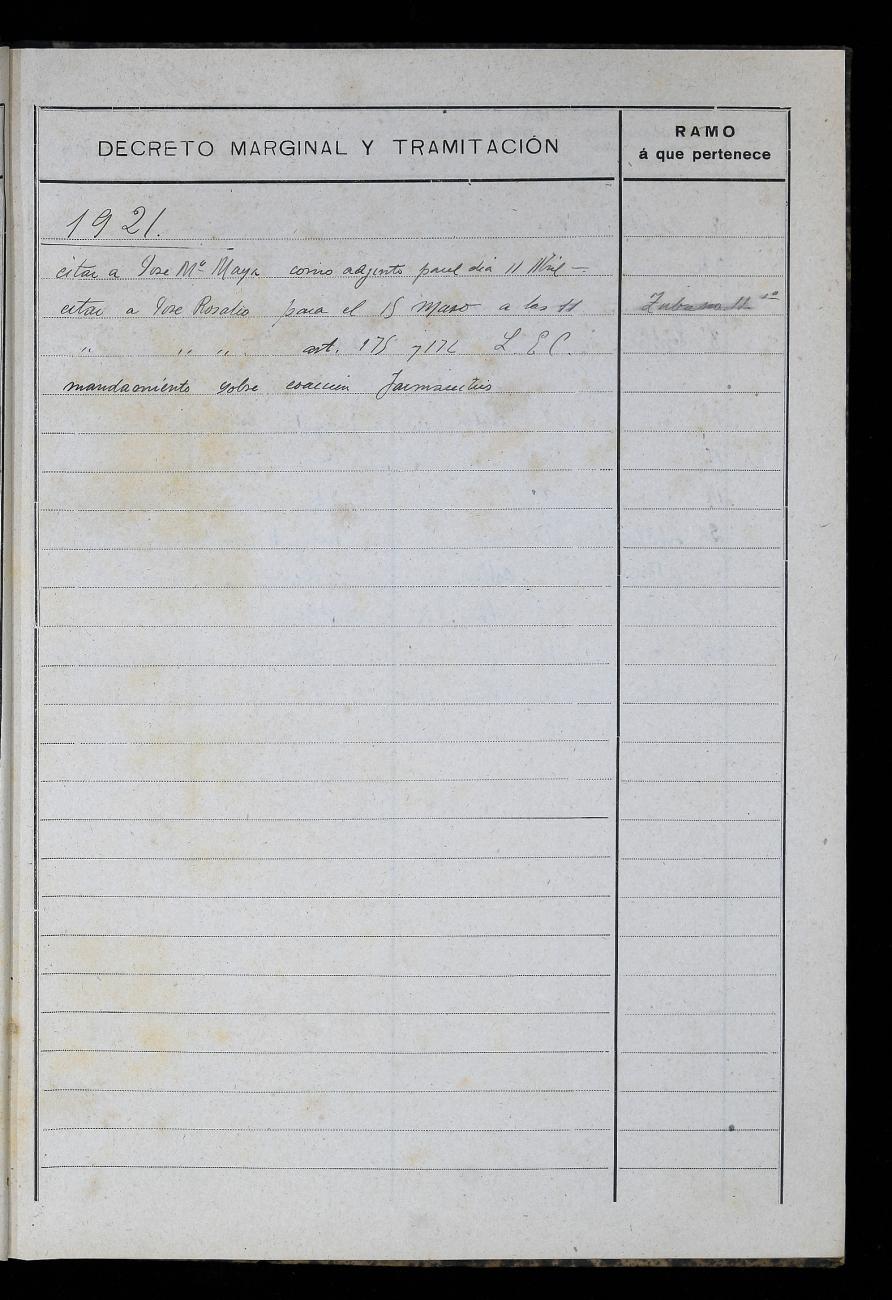 DECRETO MARGINAL Y TRAMITACIÓN
RAMO
á que pertenece
1921.
citar a Jose Mª Maya como adjunto para el dia 11 Abril –
citar a Jose Rosalio para el 15 Marzo a las 11
" " " . art. 175 y 176 L. E. C.
mandamiento sobre